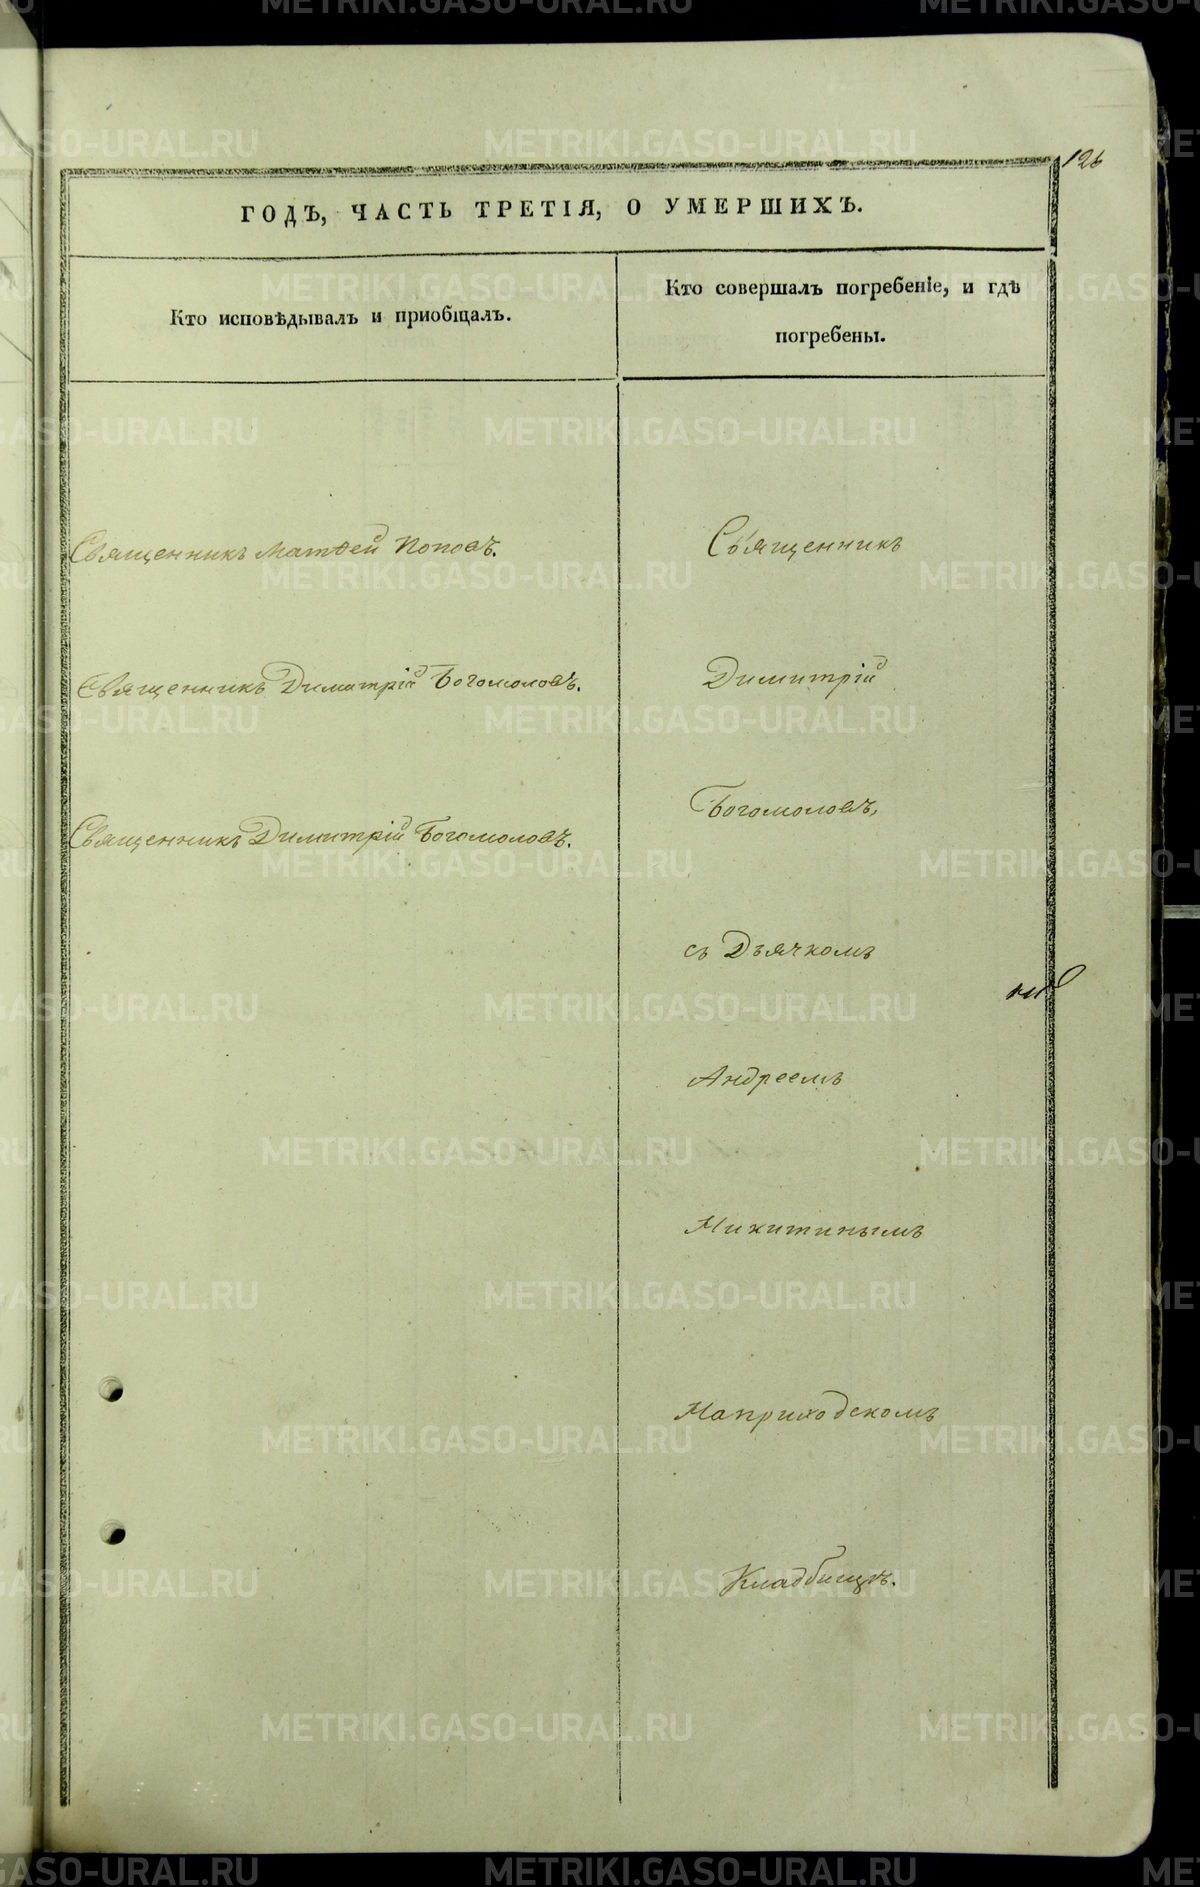 126
ГОДЪ, ЧАСТЬ ТРЕТІЯ, О УМЕРШИХЪ.
Кто исповѣдывалъ и пріобщалъ.
Кто совершалъ погребеніе, и гдѣ
погребены.
Священникъ Матѳей Поповъ.
Священникъ Димитрій Богомоловъ.
Священникъ Димитрій Богомоловъ.
Священникъ
Димитрій
Богомоловъ,
съ Дьячкомъ
Андреемъ
Никитинымъ
На приходскомъ
Кладбищѣ.
METRIKI.GASO-URAL.RU